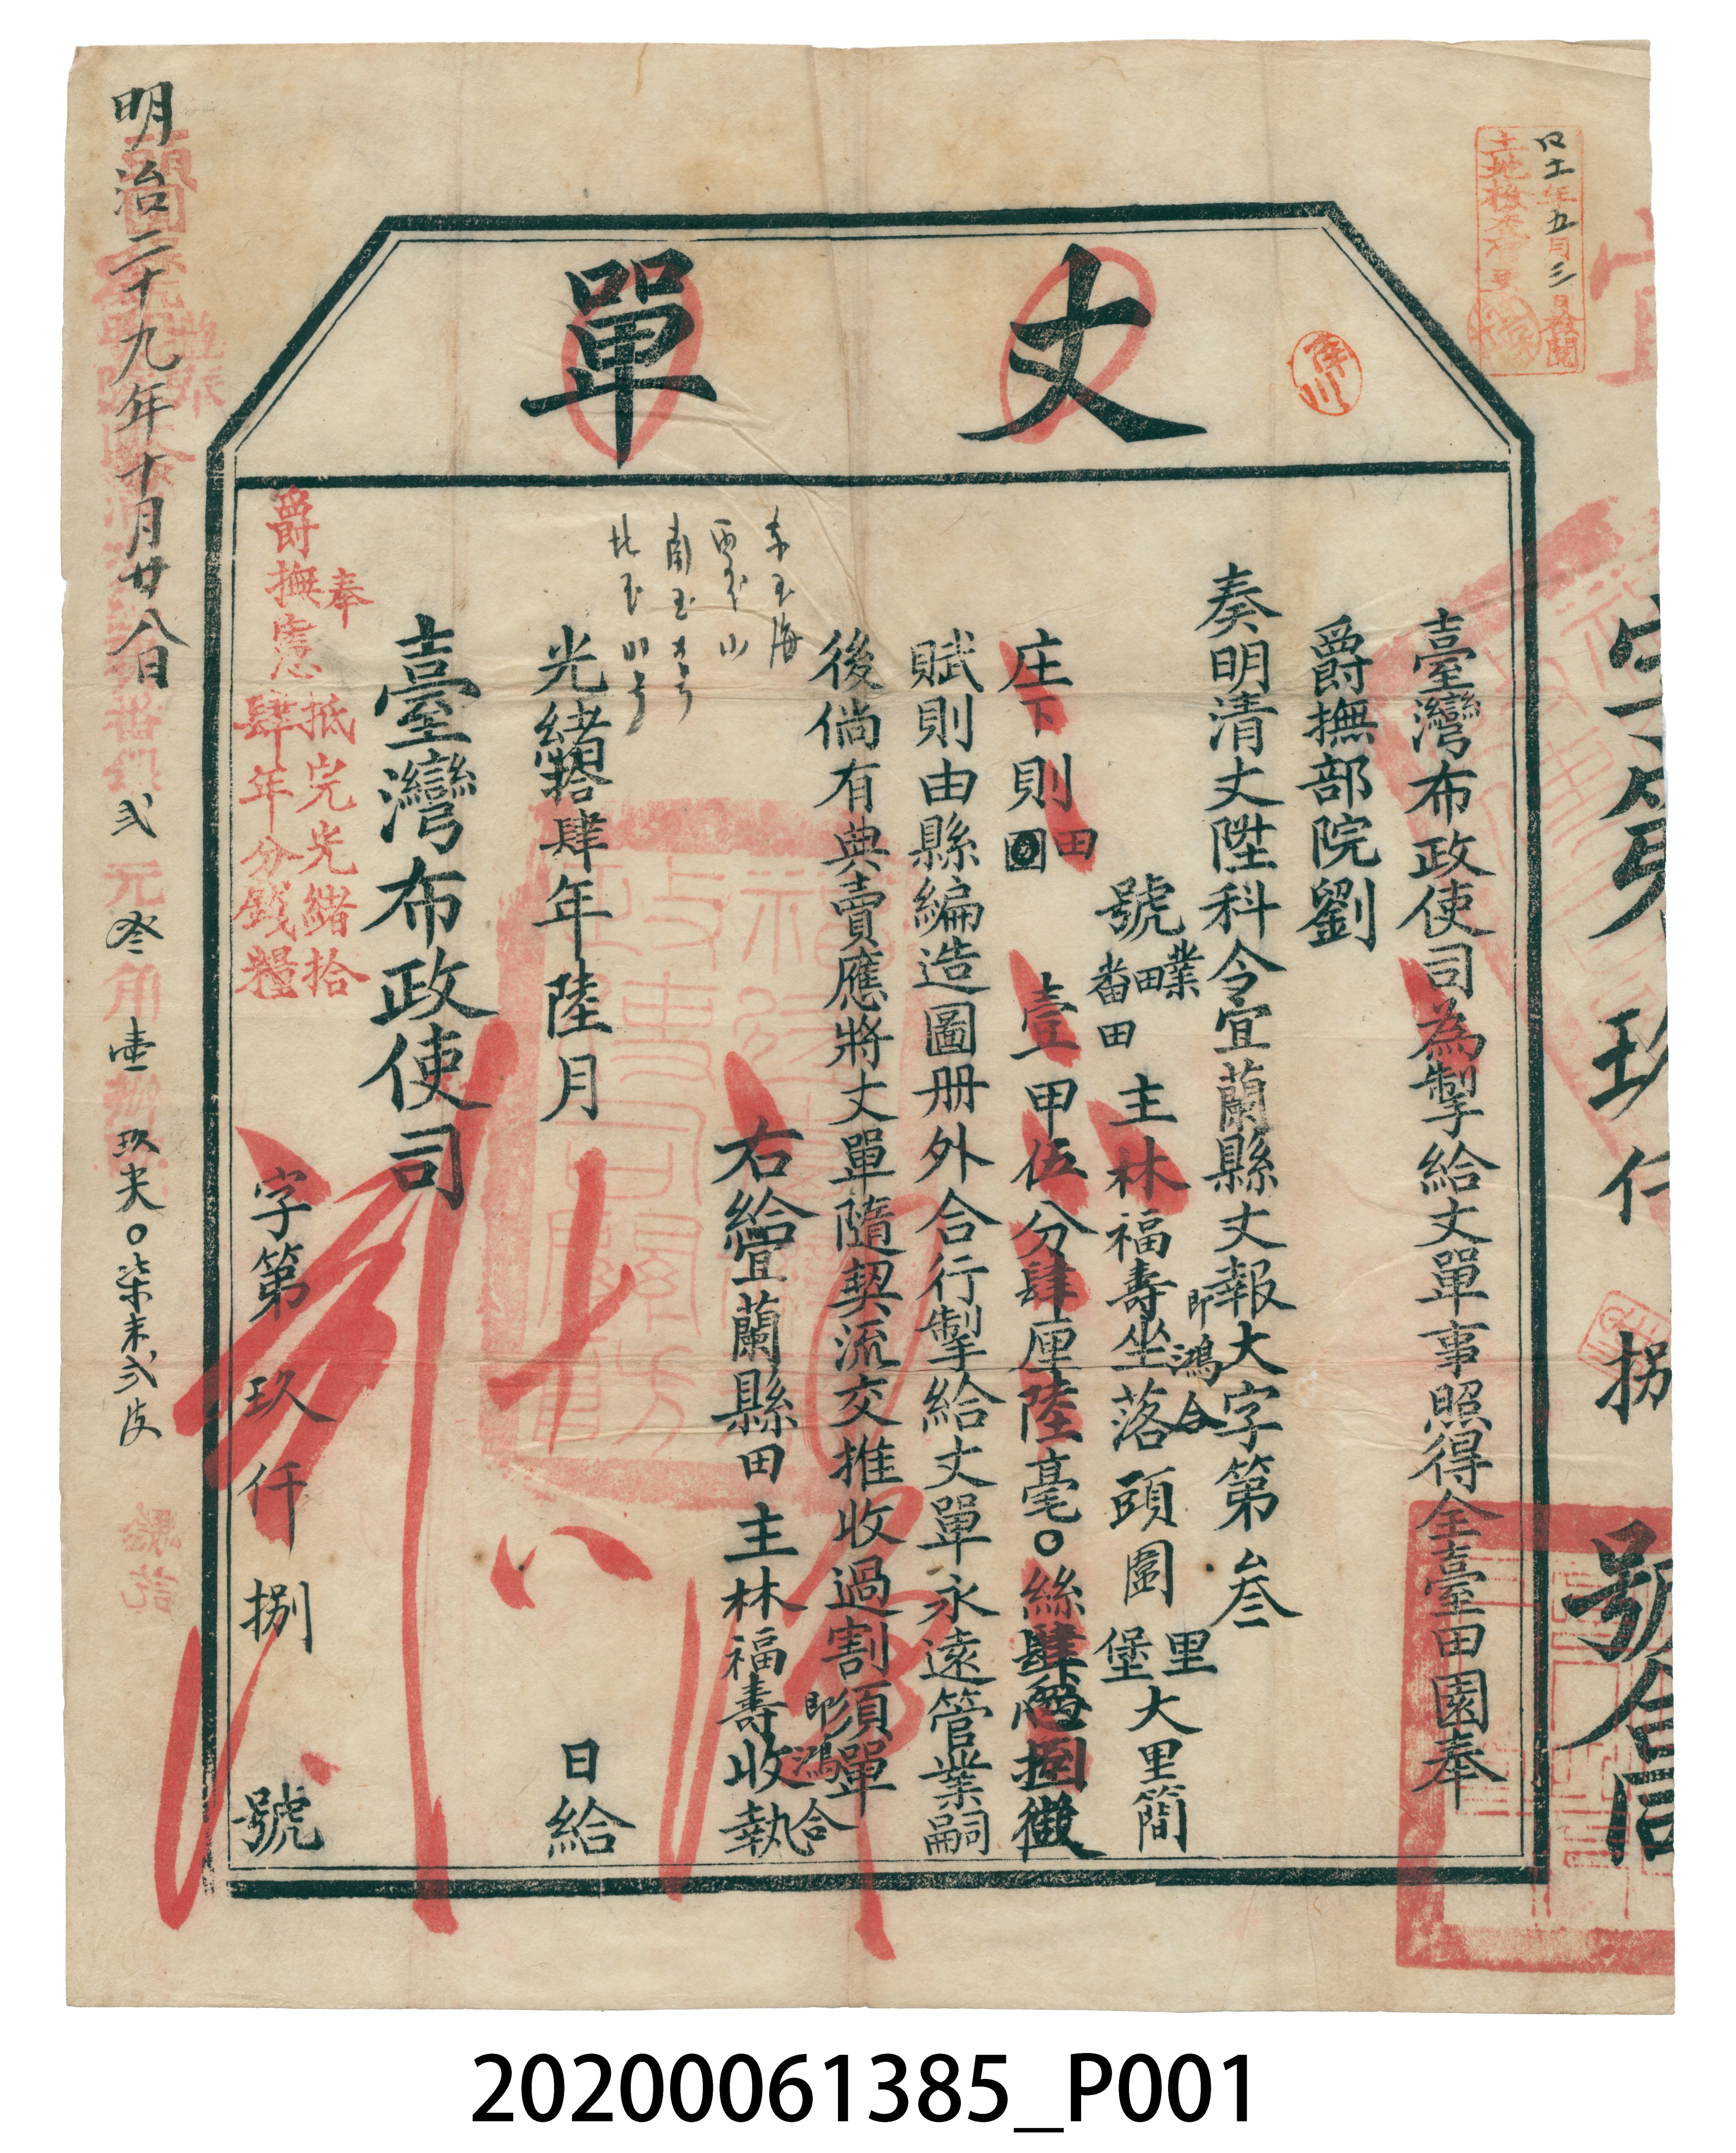 丈單
臺灣布政使司為掣給丈單事照得全臺田園奉
爵撫部院劉
奏明清丈陞科令宜蘭縣丈報大字第叁
號業田番田主林福壽即鴻合坐落頭圍里堡大里簡
庄下則田
壹甲伍分肆厘陸毫〇絲肆忽捌微
賦則由縣編造圖册外合行掣給丈單永遠管業嗣
後倘有典賣應將丈單隨契流交推收過割須單
右給宜蘭縣田主林福壽即鴻合收執
東至海
西至山
南至
北至
光緒拾肆年陸月
十八
日給
臺灣布政使司
奉
爵撫憲
抵完光緒拾
肆年分錢糧
字第玖仟捌號
明治二十九年十月廿八日
弍元叁角壹
玖尖〇柒末弍皮
驗訖
字第玖仟捌
號
年五月三日查閱
土地